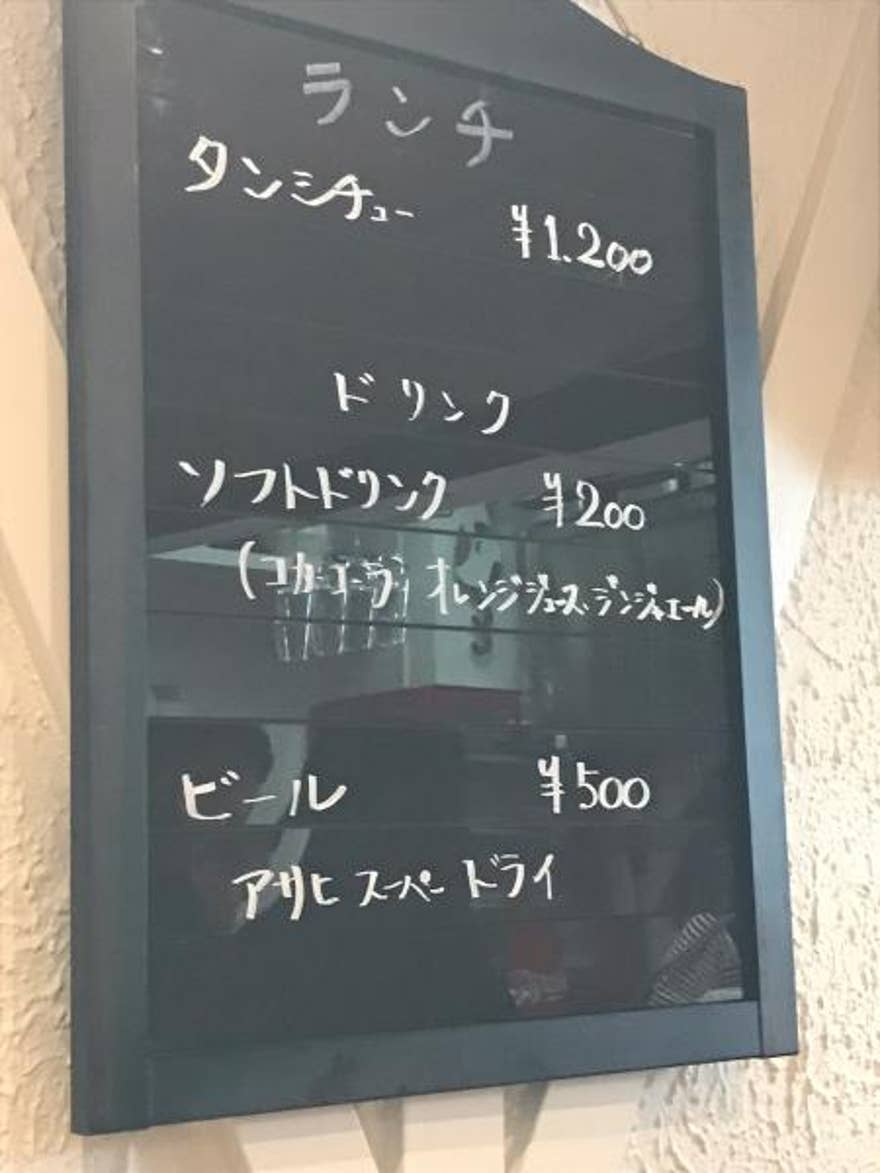 ランチ
タンシチュー ¥1.200
ドリンク
ソフトドリンク ¥200
(コカ・コーラ オレンジジュース、ジンジャエール)
ビール ¥500
アサヒ スーパードライ